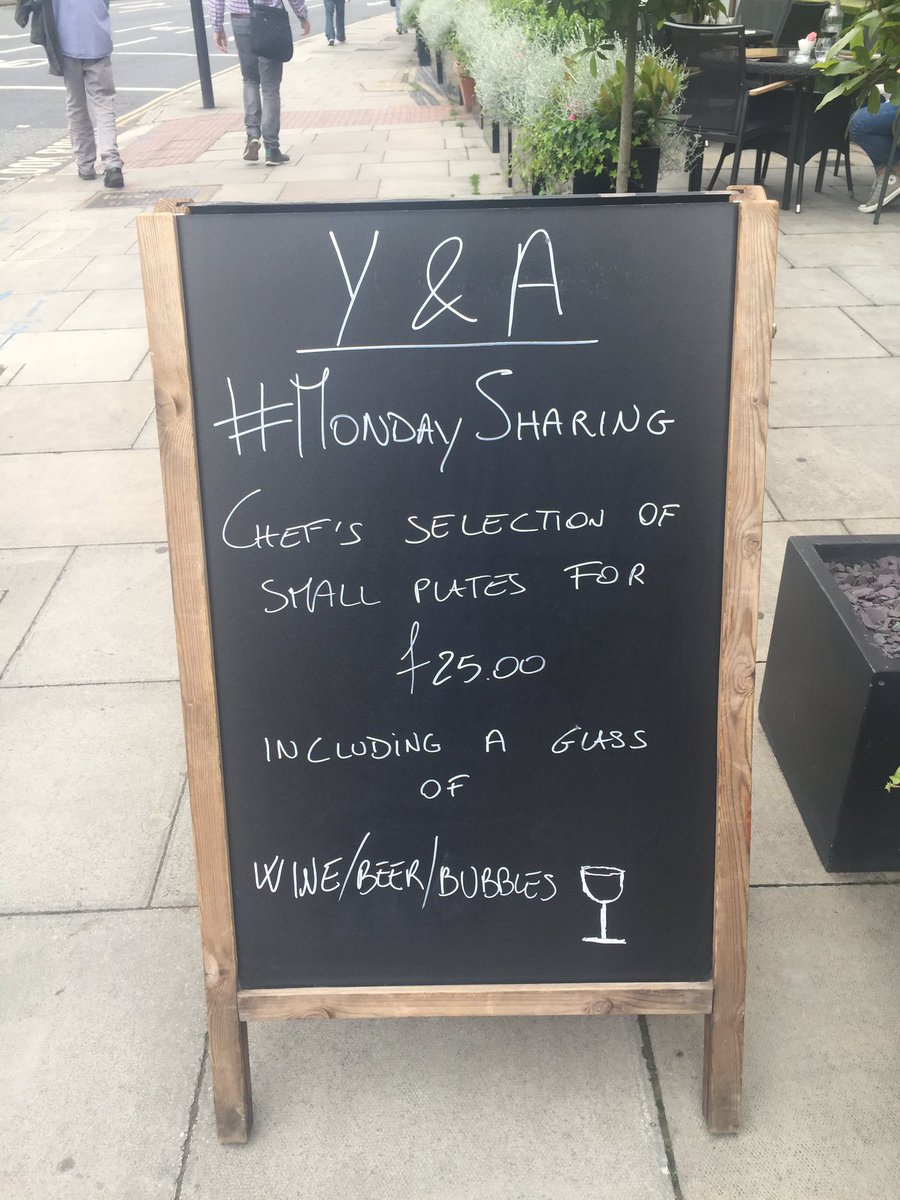 Y & A
#MONDAY SHARING
CHEF'S SELECTION OF
SMALL PLATES FOR
£25.00
INCLUDING A GLASS
OF
WINE/BEER/BUBBLES